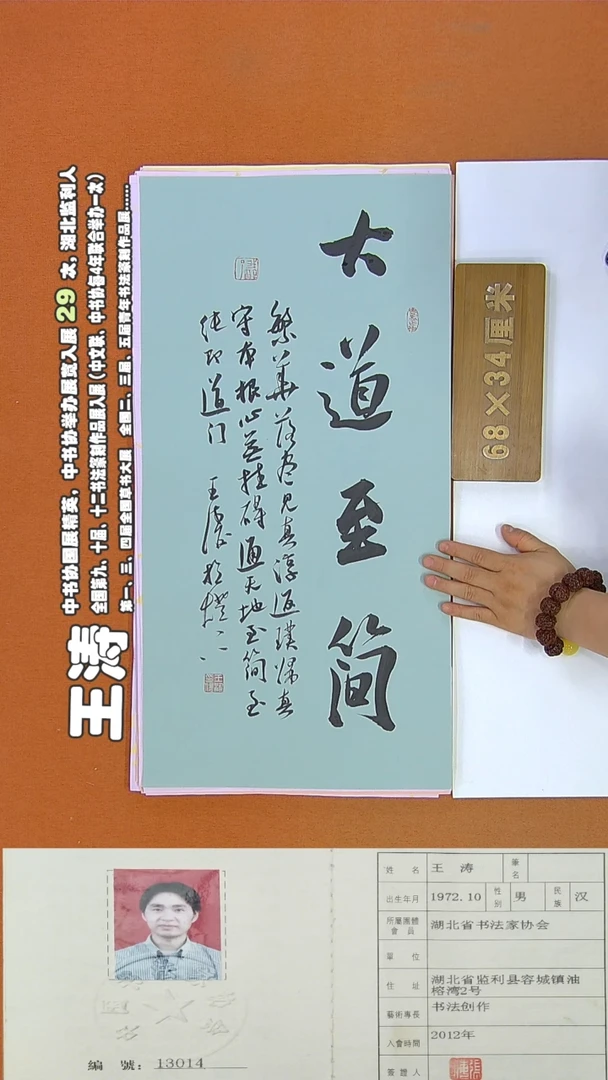 大道至简
繁华落尽见真淳返璞归真
守本根心无挂碍通天地至简至
纯即道门 王涛
68×34厘米
王涛
中书协国展精英，中书协举办展览入展29次，湖北监利人
全国第九、十届、十二书法篆刻作品展入展（中文联、中书协每4年联合举办一次）
第一、三、四届全国草书大展 全国二、三届、五届青年书法篆刻作品展......
姓名 王涛 笔名
出生年月 1972.10 性别 男 民族 汉
所屬團體會員 湖北省书法家协会
單位
住址 湖北省监利县容城镇油榕湾2号
藝術專長 书法创作
入會時間 2012年
簽證人
編號：13014